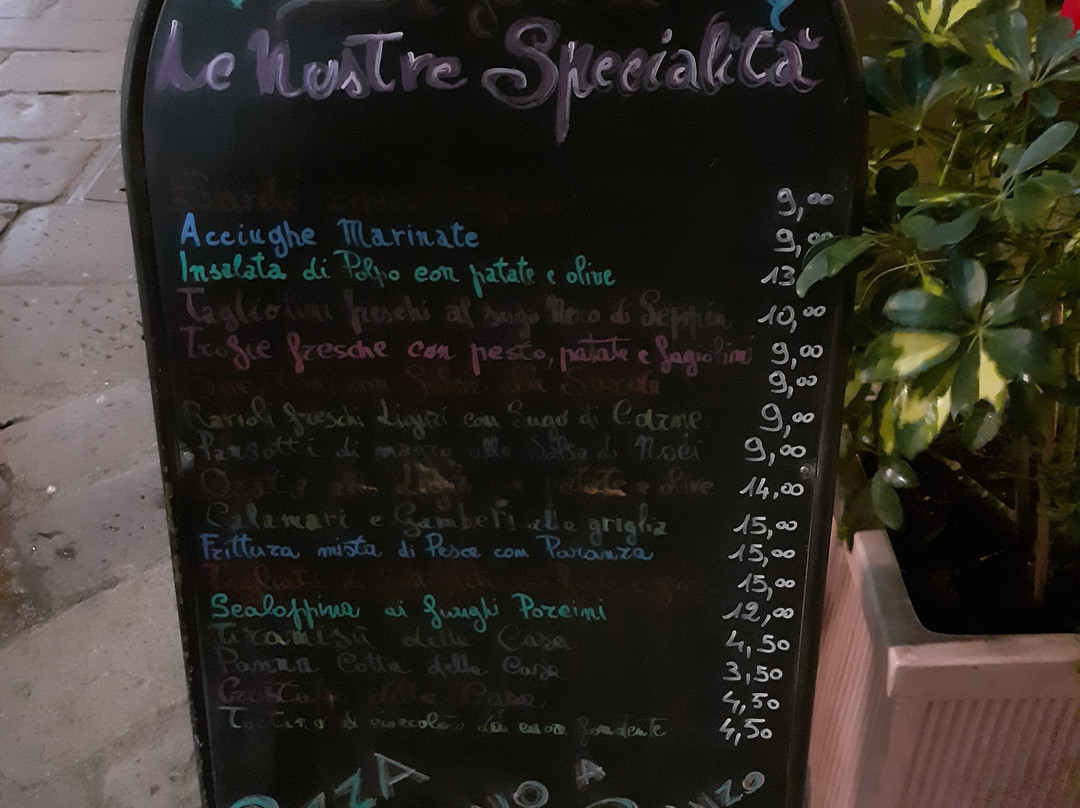 Le Nostre Specialità
Sardi 9,00
Acciughe Marinate 9,00
Insalata di Polpo con patate e olive 13
Tagliolini freschi al sugo Nero di Seppia 10,00
Trofie fresche con pesto, patate e fagiolini 9,00
9,00
Ravioli freschi Liguri con Sugo di Carne 9,00
Pansotti di magro alla Salsa di Noci 9,00
Orata alla patate e olive 14,00
Calamari e Gamberi alla griglia 15,00
Frittura mista di Pesce con Paranza 15,00
15,00
Scaloppina ai funghi Porcini 12,00
Tiramisù della Casa 4,50
Panna Cotta della Casa 3,50
Crostata della Casa 4,50
Tortino di cioccolato dal cuore fondente 4,50